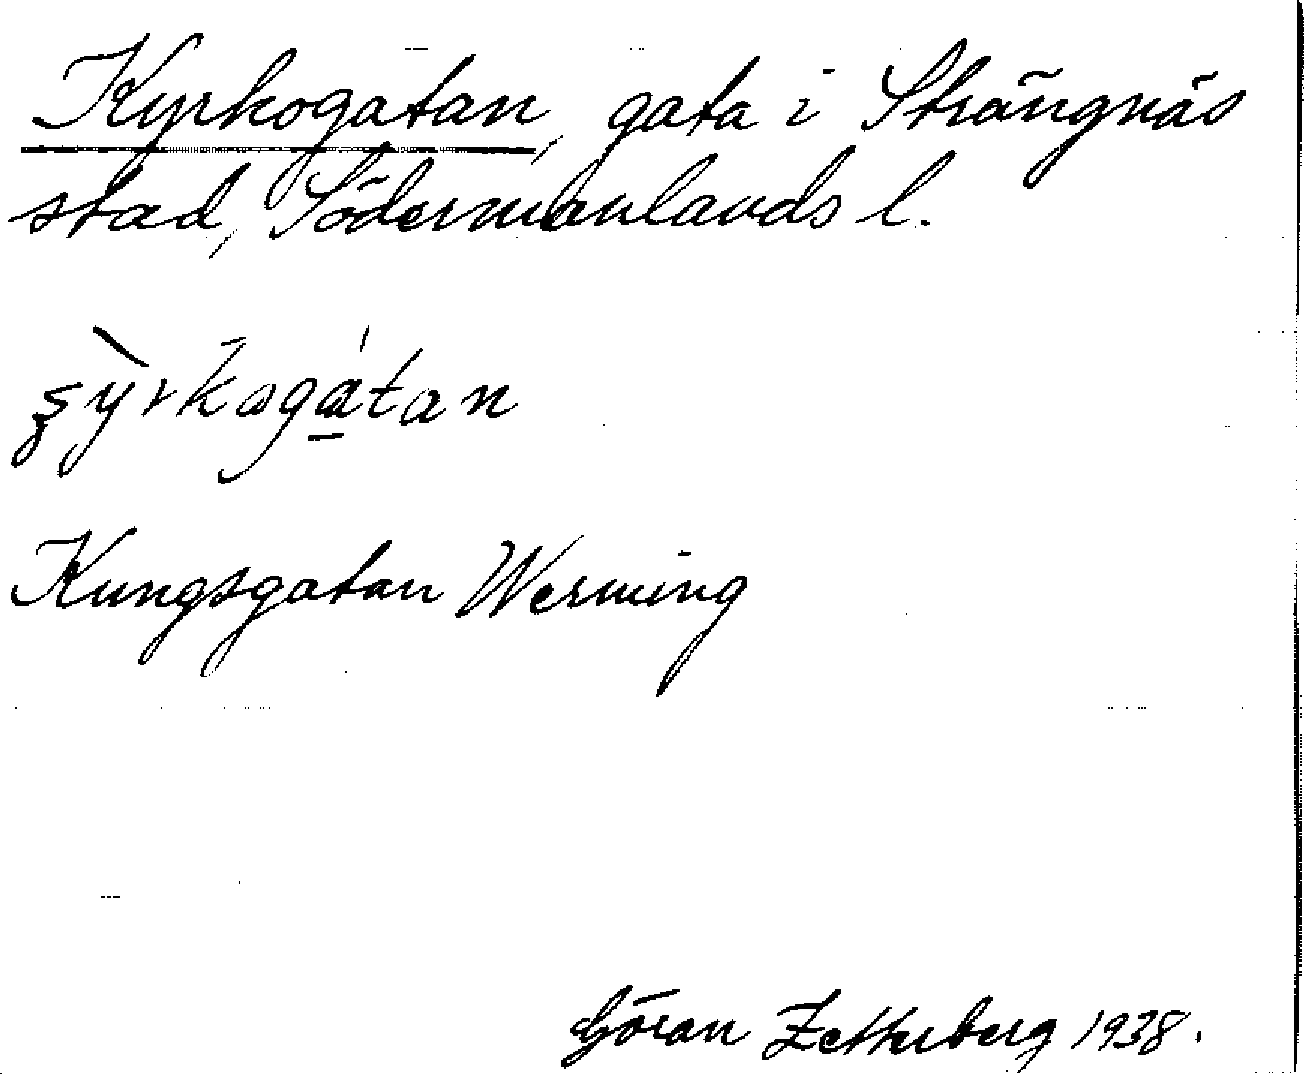 Kyrkogatan, gata i Strängnäs
stad, Södermanlands l.
Kungsgatan Werming
Göran Zetterberg 1938.